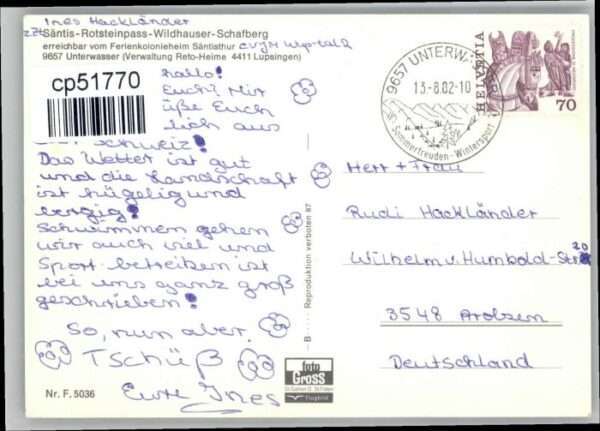 Ines Hackländer
z.Zt.
Säntis-Rotsteinpass-Wildhauser-Schafberg
erreichbar vom Ferienkolonieheim Säntisthur CVJM
9657 Unterwasser (Verwaltung Reto-Heime 4411 Lupsingen)
cp51770
Hallo!
Euch? Mir
üße Euch
lich aus
Schweiz!
Das Wetter ist gut
und die Landschaft
ist hügelig und
bergig!
Schwimmen gehen
wir auch viel und
Sport betreiben ist
bei uns ganz groß
geschrieben!
So, nun aber
Tschüß
Eure Ines
Nr. F. 5036
B
Reproduktion verboten 87
foto
GROSS
Flugbild
9657 UNTERWASSER
13-8.82-10
Sommerfreuden-Wintersport
HELVETIA
70
Herr + Frau
Rudi Hackländer
Wilhelm v. Humbold-Str. 20
3548 Arolsen
Deutschland